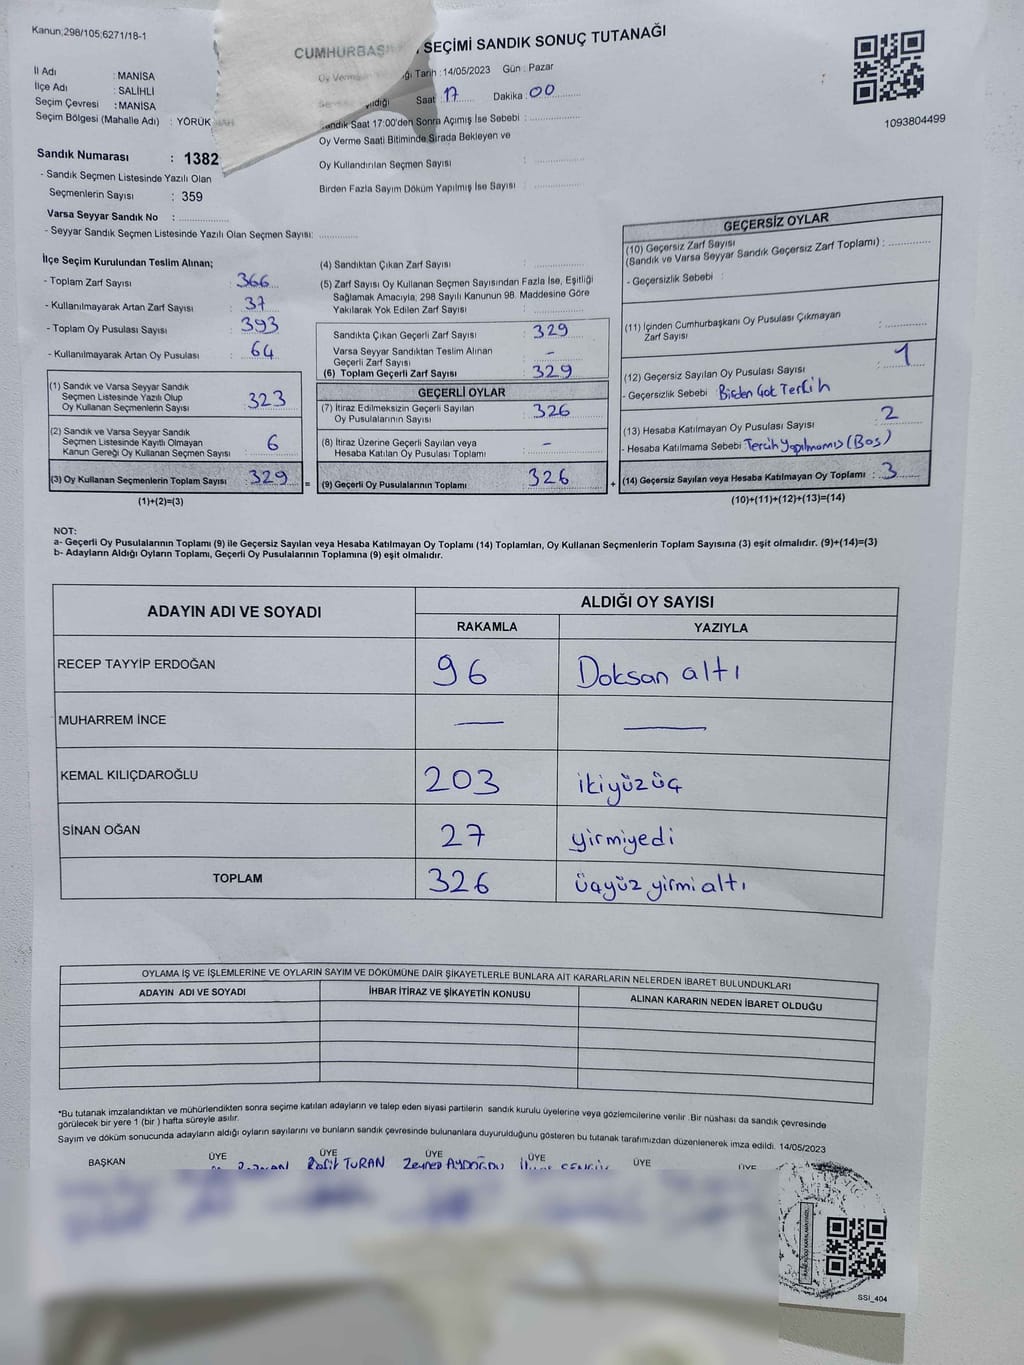 Kanun;298/105;6271/18-1
CUMHURBAŞ SEÇİMİ SANDIK SONUÇ TUTANAĞI
Tarih :14/05/2023 Gün : Pazar
Saat 17 Dakika : 00
1093804499
İl Adı : MANİSA
İlçe Adı : SALİHLİ
Seçim Çevresi : MANİSA
Seçim Bölgesi (Mahalle Adı) : YÖRÜK
Sandık Numarası : 1382
- Sandık Seçmen Listesinde Yazılı Olan
Seçmenlerin Sayısı : 359
Varsa Seyyar Sandık No :
- Seyyar Sandık Seçmen Listesinde Yazılı Olan Seçmen Sayısı:
Saat 17:00'den Sonra Açımış İse Sebebi :
Oy Verme Saati Bitiminde Sırada Bekleyen ve
Oy Kullandırılan Seçmen Sayısı :
Birden Fazla Sayım Döküm Yapılmış İse Sayısı :
İlçe Seçim Kurulundan Teslim Alınan;
- Toplam Zarf Sayısı : 366
- Kullanılmayarak Artan Zarf Sayısı : 37
- Toplam Oy Pusulası Sayısı : 393
- Kullanılmayarak Artan Oy Pusulası : 64
(1) Sandık ve Varsa Seyyar Sandık
Seçmen Listesinde Yazılı Olup
Oy Kullanan Seçmenlerin Sayısı : 323
(2) Sandık ve Varsa Seyyar Sandık
Seçmen Listesinde Kayıtlı Olmayan
Kanun Gereği Oy Kullanan Seçmen Sayısı : 6
(3) Oy Kullanan Seçmenlerin Toplam Sayısı : 329
(1)+(2)=(3)
(4) Sandıktan Çıkan Zarf Sayısı :
(5) Zarf Sayısı Oy Kullanan Seçmen Sayısından Fazla İse, Eşitliği
Sağlamak Amacıyla, 298 Sayılı Kanunun 98. Maddesine Göre
Yakılarak Yok Edilen Zarf Sayısı :
Sandıkta Çıkan Geçerli Zarf Sayısı : 329
Varsa Seyyar Sandıktan Teslim Alınan
Geçerli Zarf Sayısı : -
(6) Toplam Geçerli Zarf Sayısı : 329
GEÇERLİ OYLAR
(7) İtiraz Edilmeksizin Geçerli Sayılan
Oy Pusulalarının Sayısı : 326
(8) İtiraz Üzerine Geçerli Sayılan veya
Hesaba Katılan Oy Pusulası Toplamı : -
= (9) Geçerli Oy Pusulalarının Toplamı : 326
GEÇERSİZ OYLAR
(10) Geçersiz Zarf Sayısı
(Sandık ve Varsa Seyyar Sandık Geçersiz Zarf Toplamı) :
- Geçersizlik Sebebi :
(11) İçinden Cumhurbaşkanı Oy Pusulası Çıkmayan
Zarf Sayısı :
(12) Geçersiz Sayılan Oy Pusulası Sayısı : 1
- Geçersizlik Sebebi : Birden Çok Tercih
(13) Hesaba Katılmayan Oy Pusulası Sayısı : 2
- Hesaba Katılmama Sebebi : Tercih Yapılmamış (Boş)
+ (14) Geçersiz Sayılan veya Hesaba Katılmayan Oy Toplamı : 3
(10)+(11)+(12)+(13)=(14)
NOT:
a- Geçerli Oy Pusulalarının Toplamı (9) ile Geçersiz Sayılan veya Hesaba Katılmayan Oy Toplamı (14) Toplamları, Oy Kullanan Seçmenlerin Toplam Sayısına (3) eşit olmalıdır. (9)+(14)=(3)
b- Adayların Aldığı Oyların Toplamı, Geçerli Oy Pusulalarının Toplamına (9) eşit olmalıdır.
ADAYIN ADI VE SOYADI ALDIĞI OY SAYISI
RAKAMLA YAZIYLA
RECEP TAYYİP ERDOĞAN 96 Doksan altı
MUHARREM İNCE — —
KEMAL KILIÇDAROĞLU 203 ikiyüzüç
SİNAN OĞAN 27 yirmiyedi
TOPLAM 326 üçyüz yirmi altı
OYLAMA İŞ VE İŞLEMLERİNE VE OYLARIN SAYIM VE DÖKÜMÜNE DAİR ŞİKAYETLERLE BUNLARA AİT KARARLARIN NELERDEN İBARET BULUNDUKLARI
ADAYIN ADI VE SOYADI İHBAR İTİRAZ VE ŞİKAYETİN KONUSU ALINAN KARARIN NEDEN İBARET OLDUĞU
*Bu tutanak imzalandıktan ve mühürlendikten sonra seçime katılan adayların ve talep eden siyasi partilerin sandık kurulu üyelerine veya gözlemcilerine verilir .Bir nüshası da sandık çevresinde
görülecek bir yere 1 (bir ) hafta süreyle asılır.
Sayım ve döküm sonucunda adayların aldığı oyların sayılarını ve bunların sandık çevresinde bulunanlara duyurulduğunu gösteren bu tutanak tarafımızdan düzenlenerek imza edildi. 14/05/2023
BAŞKAN ÜYE ÜYE ÜYE ÜYE ÜYE ÜYE
TURAN Zeynep AYDOĞDU
SSI_404